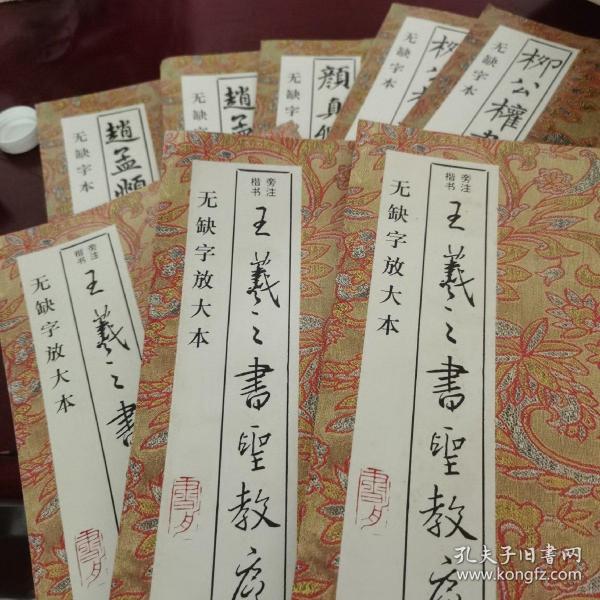 趙孟頫
无缺字本
趙孟
无缺字
顔真
无缺字
柳公
无缺字本
柳公權
无缺字本
旁注
楷书
王羲之書
无缺字放大本
旁注
楷书
王羲之書聖教序
无缺字放大本
旁注
楷书
王羲之書聖教序
无缺字放大本
孔夫子旧书网
www.kongfz.com